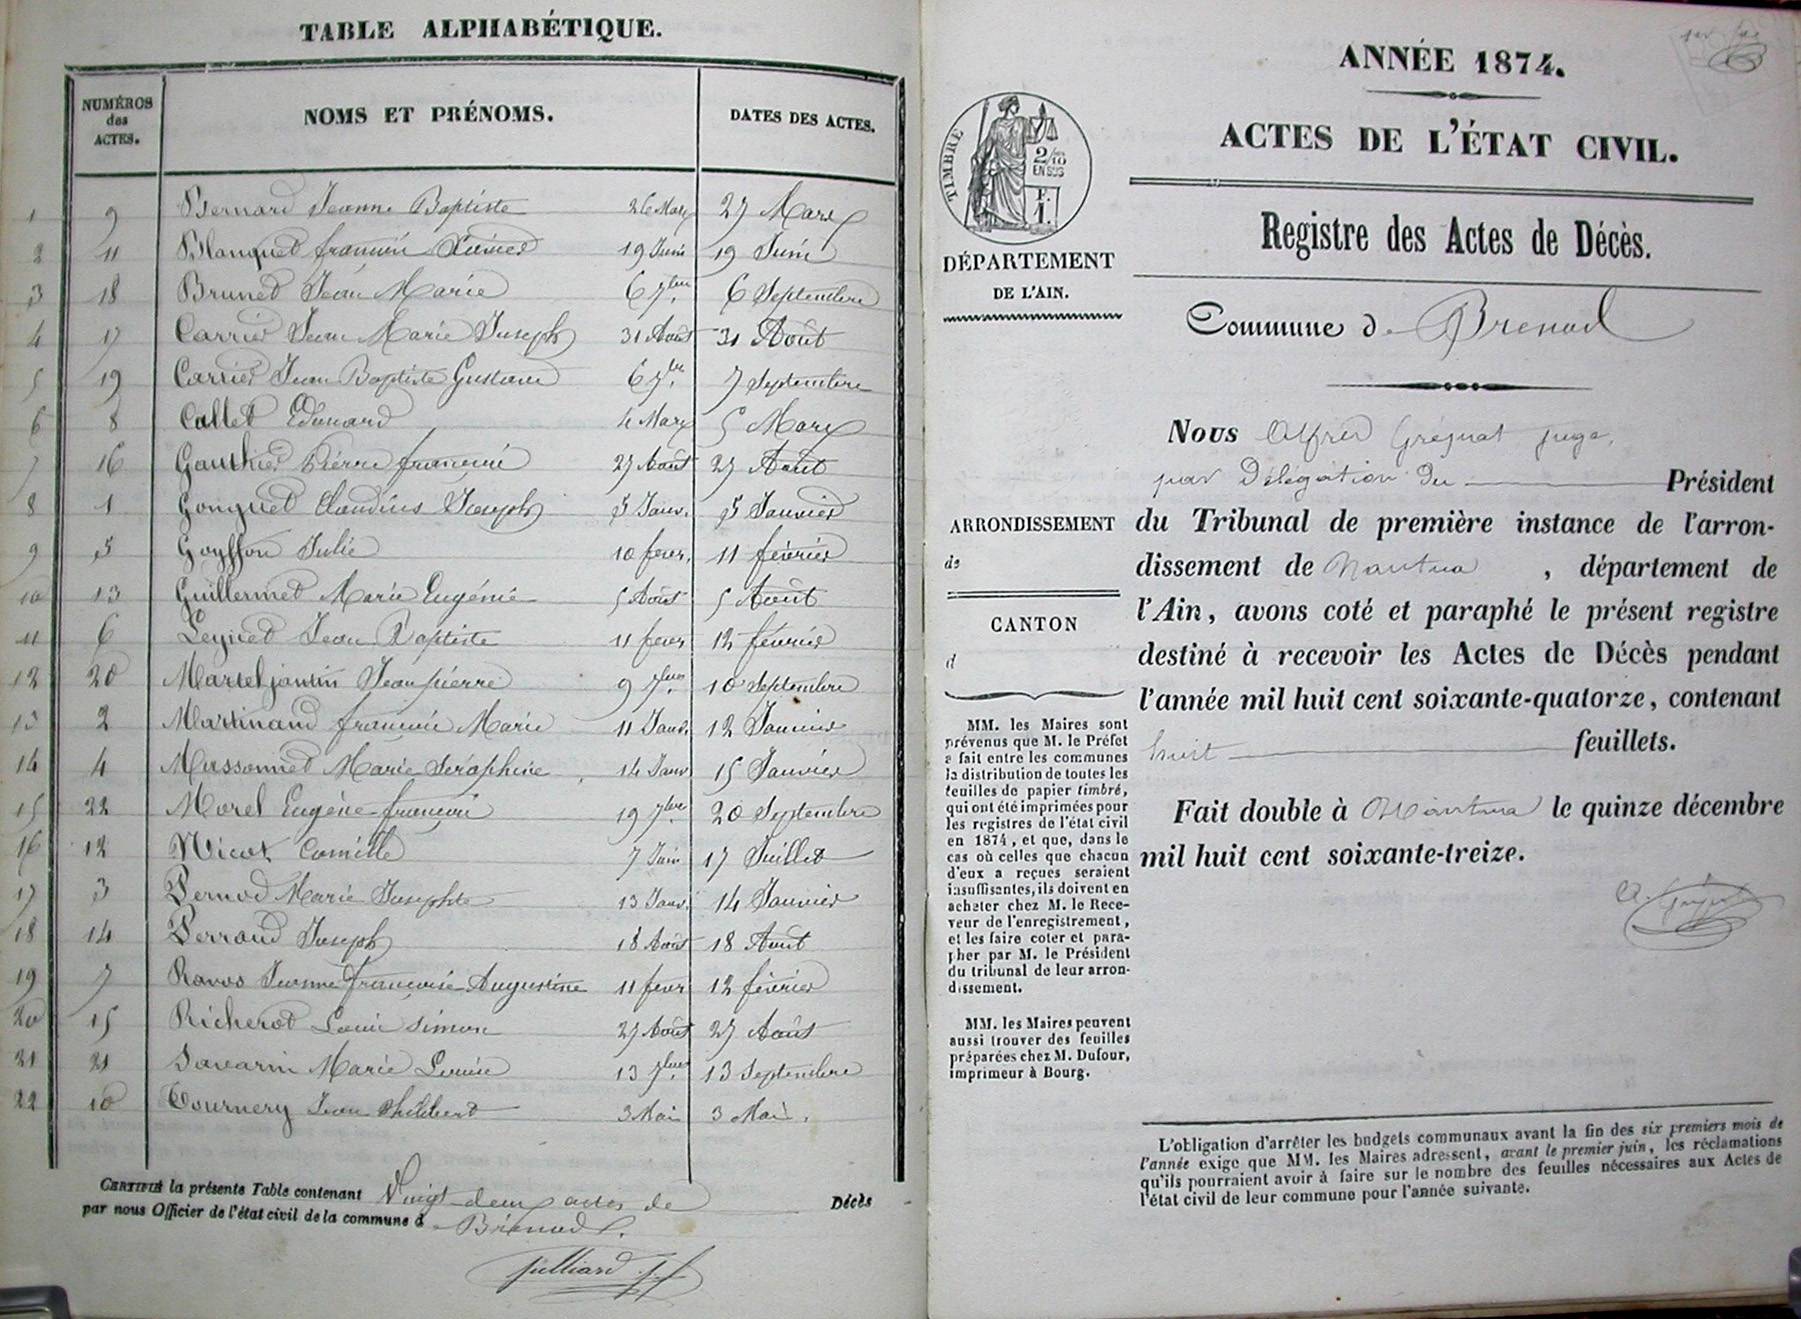 TABLE ALPHABÉTIQUE.
NUMÉROS des ACTES. NOMS ET PRÉNOMS. DATES DES ACTES.
1 9 Bernard Jeanne Baptiste 26 Mars 27 Mars
2 11 Blanquet françois 19 Juin 19 Juin
3 18 Brunet Jean Marie 6 7bre 6 Septembre
4 17 Carrier Jean Marie Joseph 31 Août 31 Août
5 19 Carrier Jean Baptiste Gustave 6 7bre 7 Septembre
6 8 Callet Edouard 4 Mars 5 Mars
7 16 Gauthier Pierre françois 27 Août 27 Août
8 1 Gonguet Claudius Joseph 5 Janv. 5 Janvier
9 5 Goyffon Julie 10 fevr. 11 février
10 13 Guillermet Marie Eugénie 5 Août 5 Août
11 6 Jean Baptiste 11 fevr 12 février
12 20 Martel jantin Jean pierre 9 7bre 10 Septembre
13 2 Martinand françoise Marie 11 Janv. 12 Janvier
14 4 Mussonnet Marie Séraphine 14 Janv 15 Janvier
15 22 Morel Eugène françois 19 7bre 20 Septembre
16 12 Nicot Camille 7 Juin 17 Juillet
17 3 Pernod Marie Josephte 13 Janv. 14 Janvier
18 14 Perraud Joseph 18 Août 18 Août
19 7 Ravos Jeanne françoise Augustine 11 fevr 12 février
20 15 Richerot Louis Simon 27 Août 27 Août
21 21 Savarin Marie Louise 13 7bre 13 Septembre
22 10 Tournery Jean Philibert 3 Mai 3 Mai.
CERTIFIÉ la présente Table contenant Vingt deux actes de Décès
par nous Officier de l'état civil de la commune d Brénod.
Julliard
ANNÉE 1874.
ACTES DE L'ÉTAT CIVIL.
TIMBRE
2/10
EN SUS
F.
1.
DÉPARTEMENT
DE L'AIN.
Registre des Actes de Décès.
Commune de Brenod
Nous Alfred Grégnat juge,
par Délégation du Président
du Tribunal de première instance de l'arron-
dissement de Nantua, département de
l'Ain, avons coté et paraphé le présent registre
destiné à recevoir les Actes de Décès pendant
l'année mil huit cent soixante-quatorze, contenant
huit feuillets.
Fait double à Nantua le quinze décembre
mil huit cent soixante-treize.
ARRONDISSEMENT
de
CANTON
d
MM. les Maires sont
prévenus que M. le Préfet
a fait entre les communes
la distribution de toutes les
feuilles de papier timbré,
qui ont été imprimées pour
les registres de l'état civil
en 1874, et que, dans le
cas où celles que chacun
d'eux a reçues seraient
insuffisantes, ils doivent en
acheter chez M. le Rece-
veur de l'enregistrement,
et les faire coter et para-
pher par M. le Président
du tribunal de leur arron-
dissement.
MM. les Maires peuvent
aussi trouver des feuilles
préparées chez M. Dufour,
imprimeur à Bourg.
L'obligation d'arrêter les budgets communaux avant la fin des six premiers mois de
l'année exige que MM. les Maires adressent, avant le premier juin, les réclamations
qu'ils pourraient avoir à faire sur le nombre des feuilles nécessaires aux Actes de
l'état civil de leur commune pour l'année suivante.